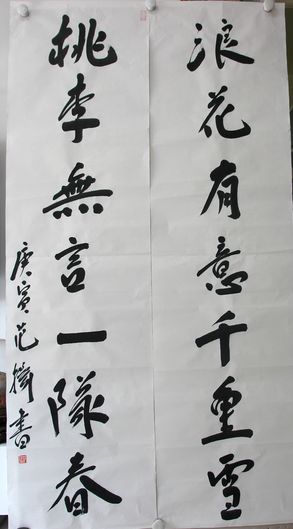 浪花有意千重雪
桃李無言一隊春
庚寅范
書